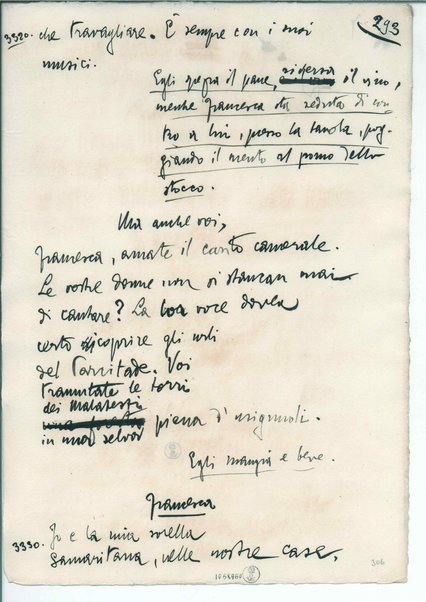 293
3320. che travagliare. È sempre con i suoi
musici.
Egli spezza il pane, il vino,
mentre Francesca sta seduta di con-
tro a lui, presso la tavola, pog-
giando il mento al pomo dello
stocco.
Ma anche voi,
Francesca, amate il canto camerale.
Le vostre donne non si stancan mai
di cantare? La loro voce dovea
certo ricoprire gli urli
del Tarnitade. Voi
tramutate le torri
dei Malatesti
in una selva piena d'usignuoli.
Egli mangia e beve.
Francesca
3330. Io e la mia sorella
Samaritana, nelle nostre case,
306